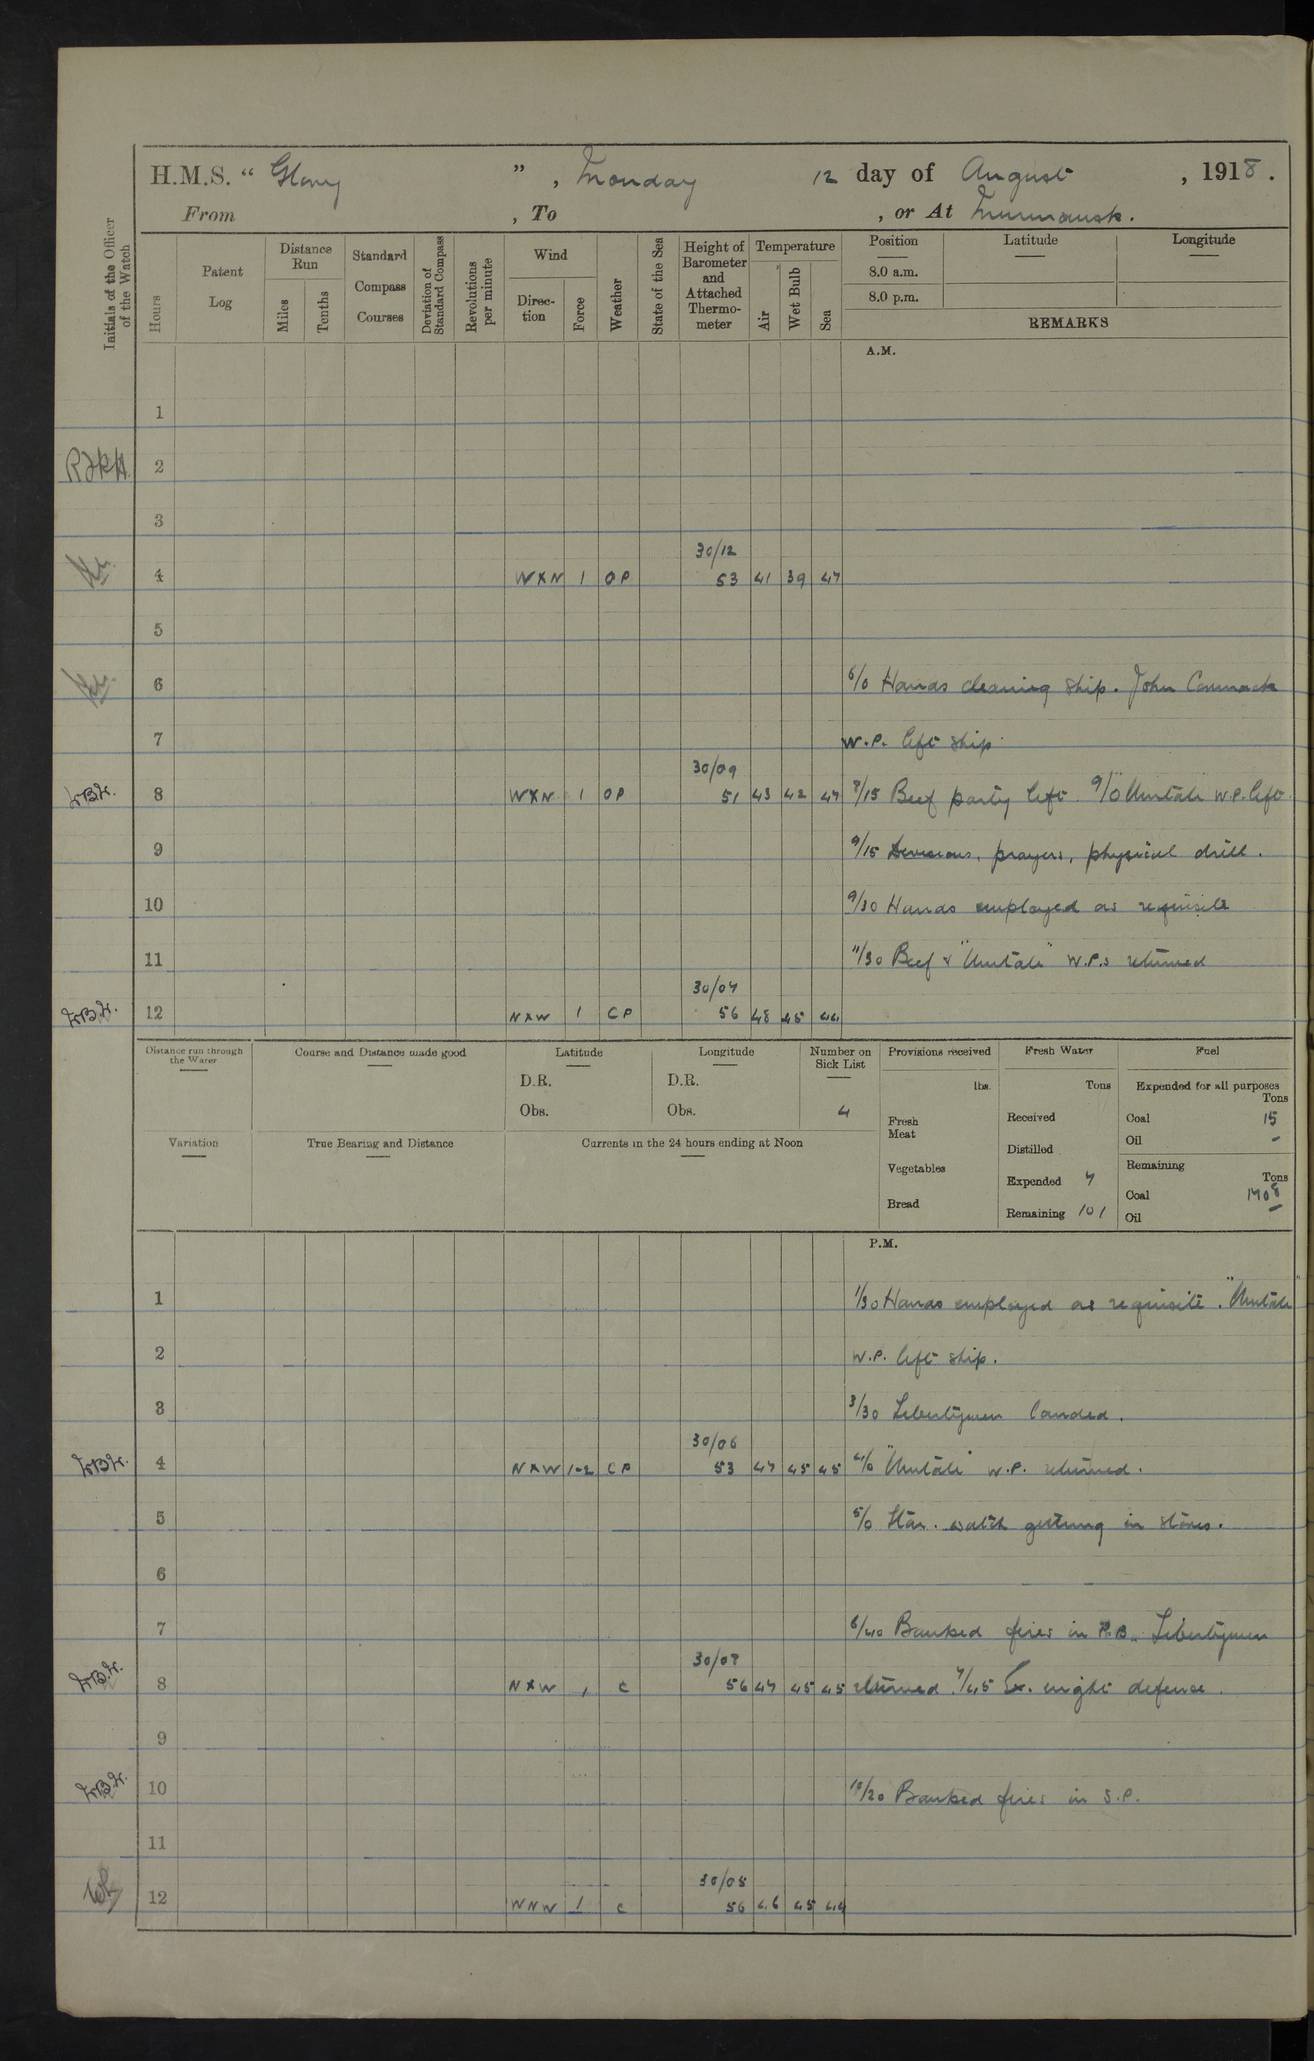 H.M.S. “ Glory ” , Monday 12 day of August , 1918 .
From , To , or At Murmansk.
Initials of the Officer of the Watch
Hours
Patent Log
Distance Run
Miles
Tenths
Standard Compass Courses
Deviation of Standard Compass
Revolutions per minute
Wind
Direc-tion
Force
Weather
State of the Sea
Height of Barometer and Attached Thermo-meter
Temperature
Air
Wet Bulb
Sea
Position Latitude Longitude
8.0 a.m.
8.0 p.m.
REMARKS
A.M.
1
2
3
30/12
4 WXN 1 OP 53 41 39 47
5
6 6/0 Hands cleaning ship. John Cormack
7 W.P. left ship.
30/09
8 WXN 1 OP 51 43 42 47 8/15 Beef party left. 9/0 "Umtali" W.P. left.
9 9/15 Divisions, prayers, physical drill.
10 9/30 Hands employed as requisite
11 11/30 Beef & "Umtali" W.P.s returned
30/07
12 NXW 1 CP 56 48 45 44
Distance run through the Water
Course and Distance made good
Latitude
D.R.
Obs.
Longitude
D.R.
Obs.
Number on Sick List
4
Variation
True Bearing and Distance
Currents in the 24 hours ending at Noon
Provisions received
lbs.
Fresh Meat
Vegetables
Bread
Fresh Water
Tons
Received
Distilled
Expended 7
Remaining 101
Fuel
Expended for all purposes
Tons
Coal 15
Oil -
Remaining
Tons
Coal 1708
Oil -
P.M.
1 1/30 Hands employed as requisite. "Umtali"
2 W.P. left ship.
3 3/30 Libertymen landed.
30/06
4 NXW 1-2 CP 53 47 45 45 4/0 "Umtali" W.P. returned.
5 5/0 Star. watch getting in stores.
6
7 6/40 Banked fires in P.B. Libertymen
30/07
8 NXW 1 C 56 47 45 45 returned. 7/45 Ex. night defence.
9
10 10/20 Banked fires in S.P.
11
30/08
12 WNW 1 C 56 46 45 44